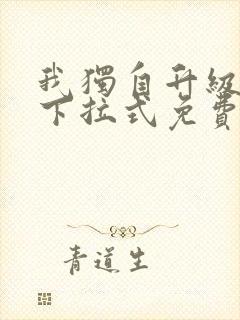 我獨自升級
下拉式免費
青道生